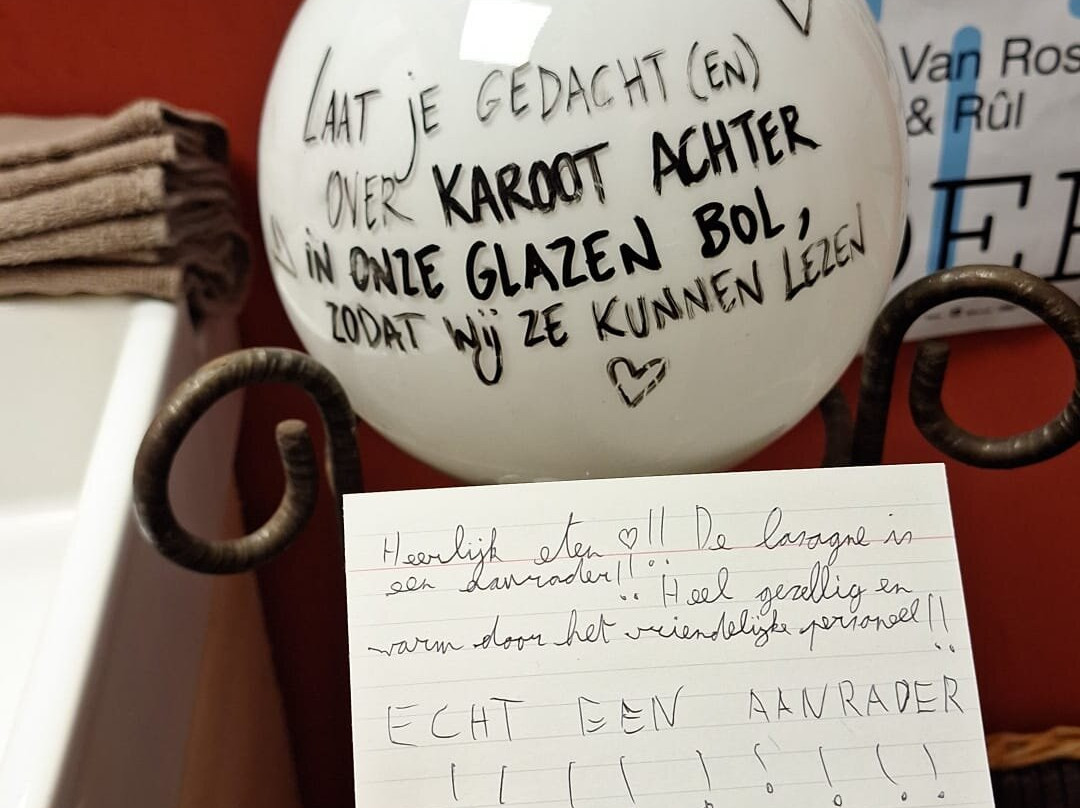 LAAT jE GEDACHT(EN)
OVER KAROOT ACHTER
iN ONZE GLAZEN BOL,
ZODAT Wij ZE KUNNEN LEZEN
♡
Van Ros
& Rûl
Heerlijk eten ♡!! De lasagne is
een aanrader!! Heel gezellig en
warm door het vriendelijke personeel!!
ECHT EEN AANRADER
! ! ! ! ! ! ! ! !